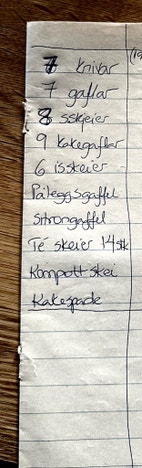 7 knivar
7 gaflar
8 sskjeier
9 kakegafler
6 isskeier
Påleggsgaffel
sitrongaffel
Te skeier 14stk
Kompott skei
Kakespade